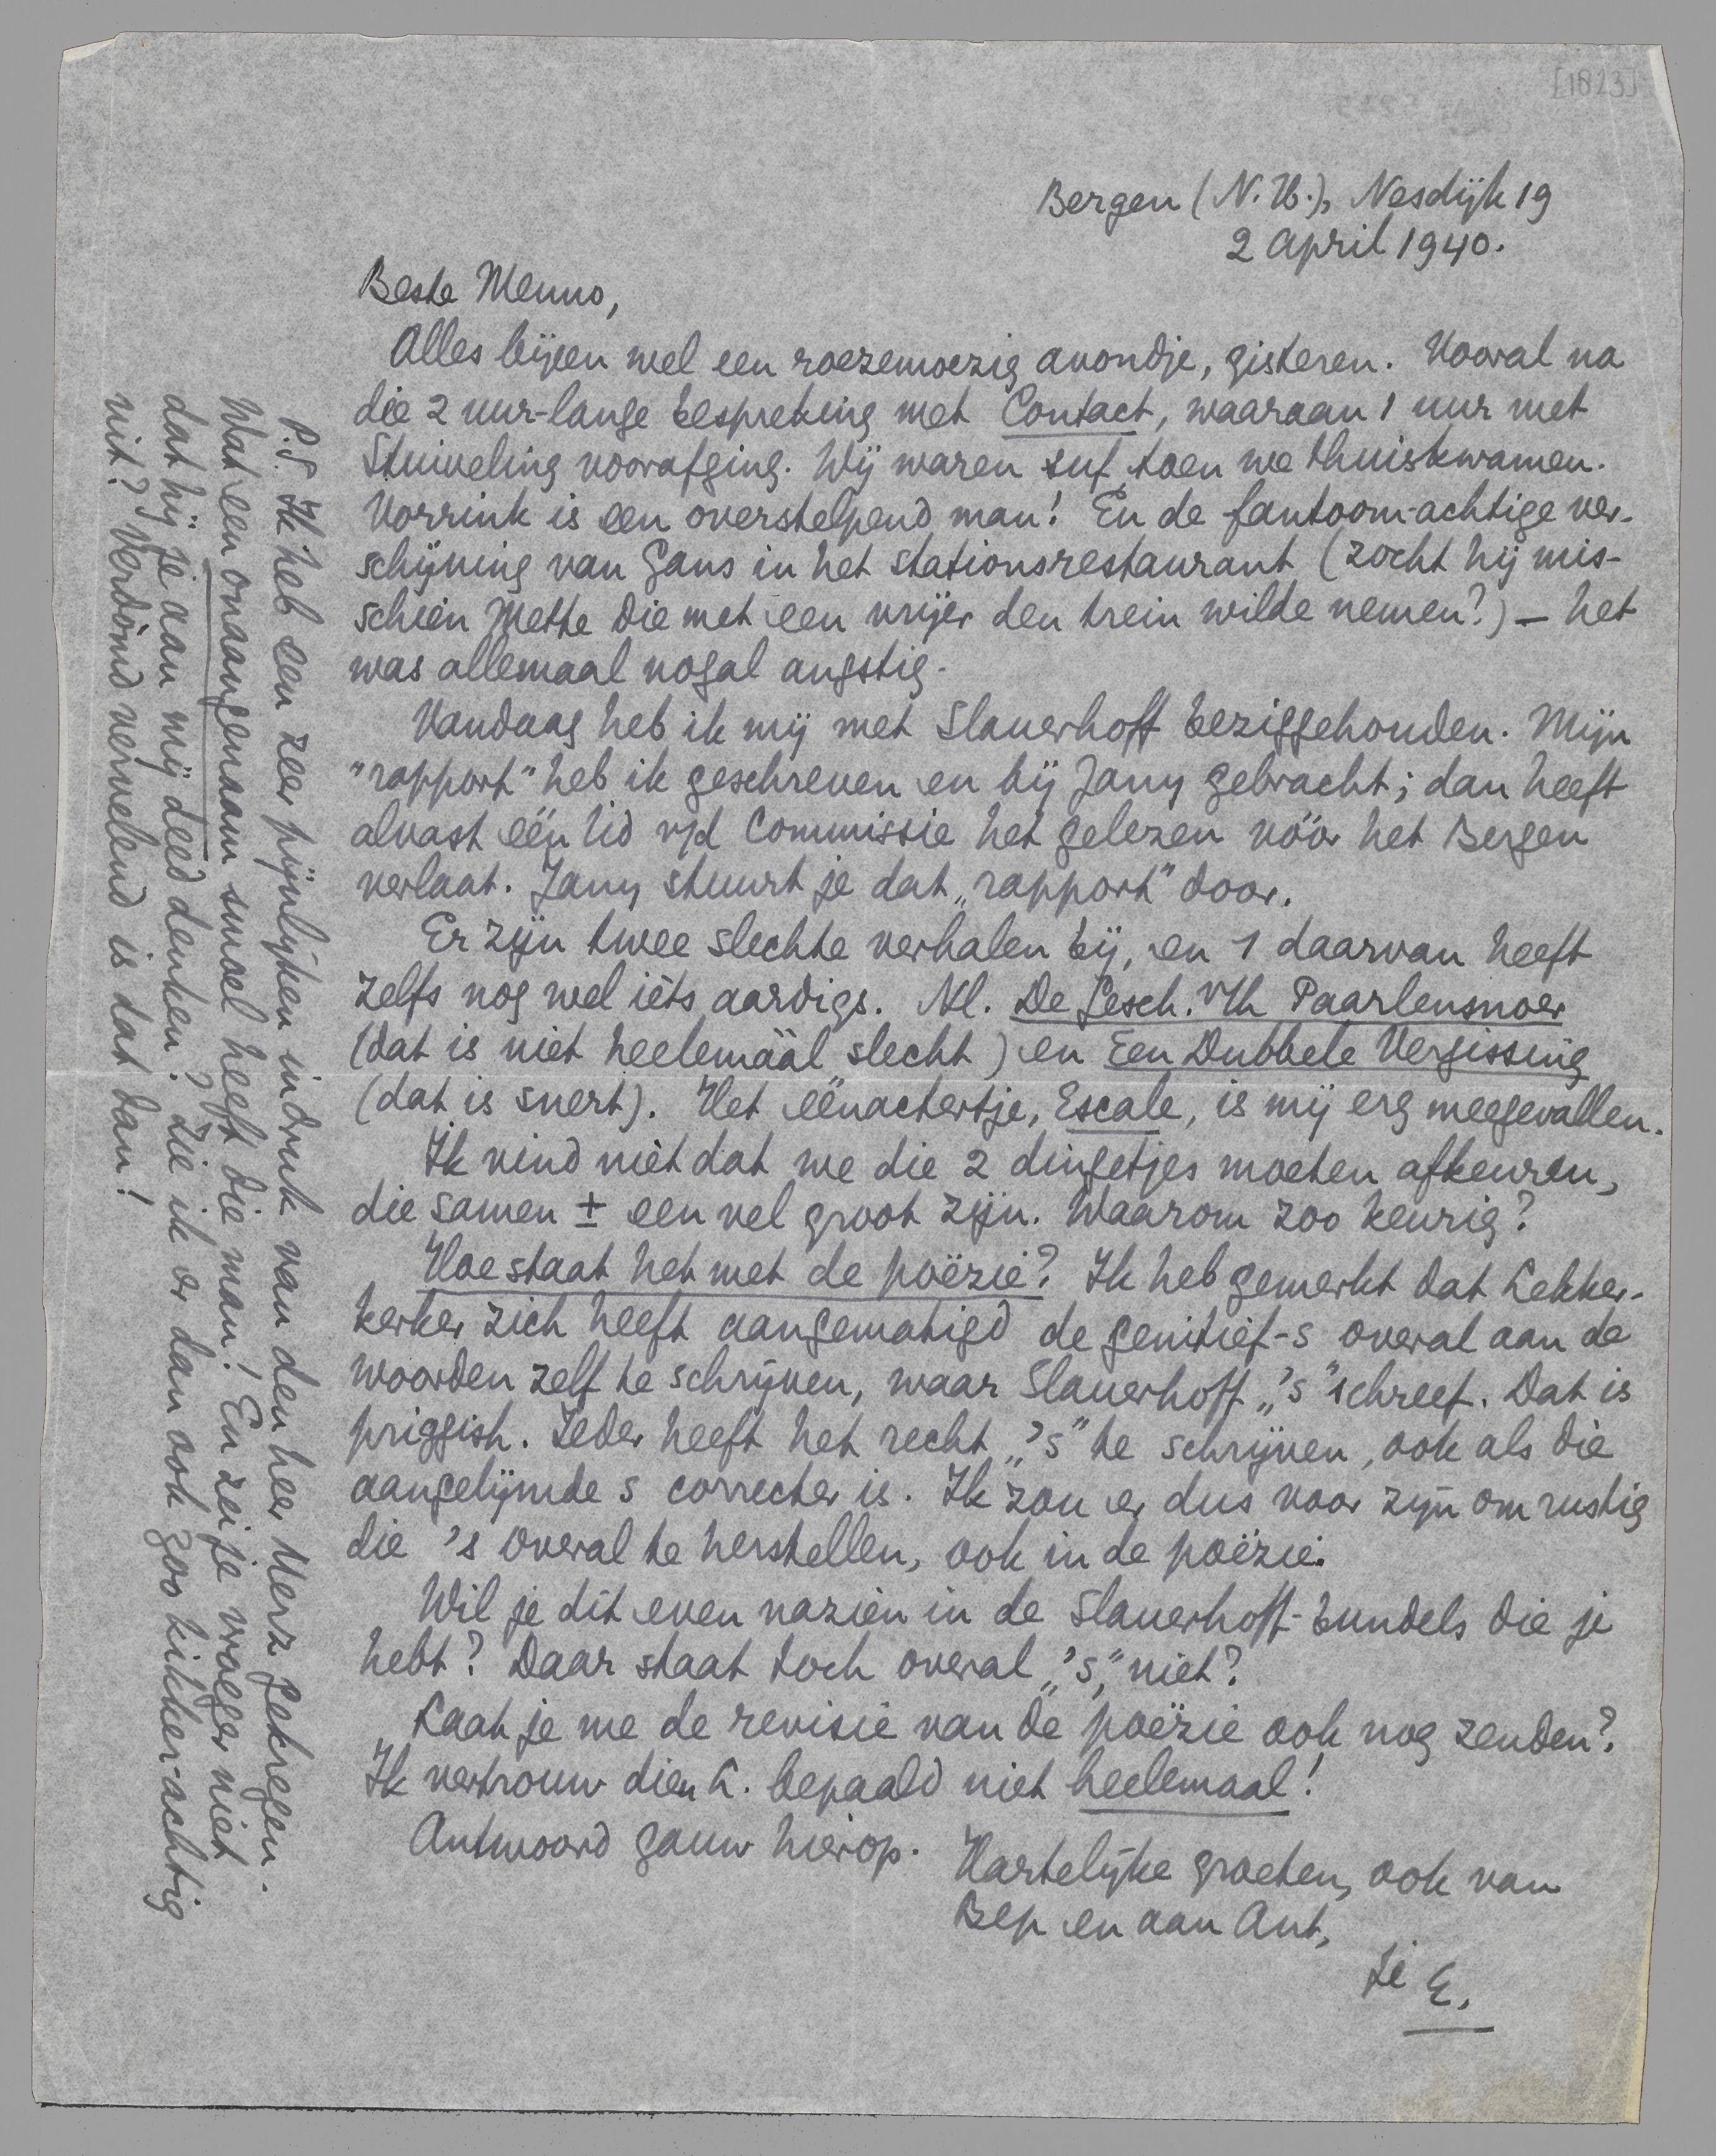 [1823]
Bergen (N.H.), Nesdijk 19
2 april 1940.
Beste Menno,
Alles bijeen wel een roezemoezig avondje, gisteren. Vooral na
die 2 uur-lange bespreking met Contact, waaraan 1 uur met
Stuiveling voorafging. Wij waren suf toen we thuiskwamen.
Vorrink is een overstelpend man! En de fantoom-achtige ver-
schijning van Gans in het stationsrestaurant (zocht hij mis-
schien Mette die met een vrijer den trein wilde nemen?) – het
was allemaal nogal angstig.
Vandaag heb ik mij met Slauerhoff beziggehouden. Mijn
"rapport" heb ik geschreven en bij Jany gebracht; dan heeft
alvast één lid v/d Commissie het gelezen vóór het Bergen
verlaat. Jany stuurt je dat „rapport" door.
Er zijn twee slechte verhalen bij, en 1 daarvan heeft
zelfs nog wel iets aardigs. Nl. De Gesch. v/h Paarlensnoer
(dat is niet heelemáál slecht) en Een Dubbele Vergissing
(dat is snert). Het éénactertje, Escale, is mij erg meegevallen.
Ik vind niet dat we die 2 dingetjes moeten afkeuren,
die samen ± een vel groot zijn. Waarom zoo keurig?
Hoe staat het met de poëzie? Ik heb gemerkt dat Lekker-
kerker zich heeft aangematigd de genitief-s overal aan de
woorden zelf te schrijven, waar Slauerhoff „'s" schreef. Dat is
priggish. Ieder heeft het recht „'s" te schrijven, ook als die
aangelijmde s correcter is. Ik zou er dus voor zijn om rustig
die 's overal te herstellen, ook in de poëzie.
Wil je dit even nazien in de Slauerhoff-bundels die je
hebt? Daar staat toch overal „'s", niet?
Laat je me de revisie van de poëzie ook nog zenden?
Ik vertrouw dien L. bepaald niet heelemaal!
Antwoord gauw hierop.
Hartelijke groeten, ook van
Bep en aan Ant,
je E.
P.S. Ik heb een zeer pijnlijken indruk van den heer Merz gekregen.
Wat een onaangenaam smoel heeft die man! En zei je vroeger niet
dat hij je aan mij deed denken? Zie ik er dan ook zoo kikker-achtig
uit? Verdomd vervelend is dat dan!